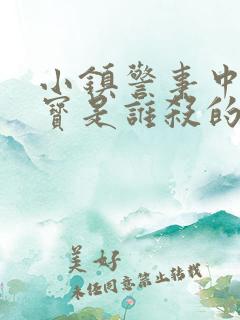 小鎮警事中
寶是誰殺的
美好
未经同意禁止转载